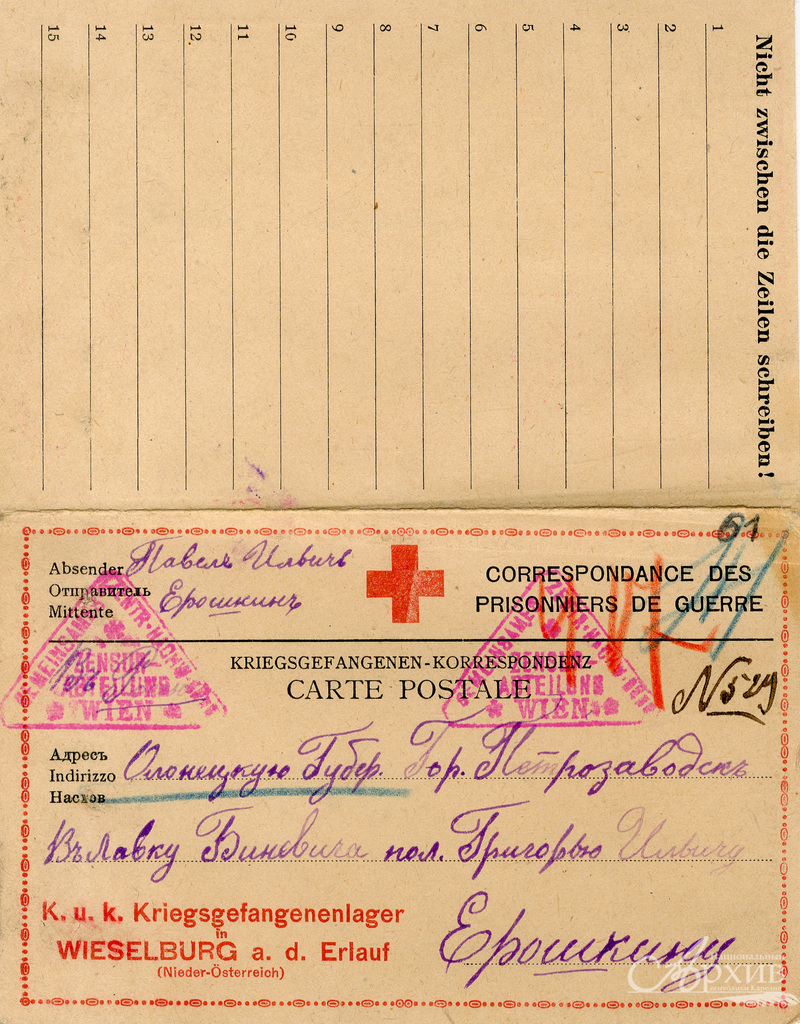 Nicht zwischen die Zeilen schreiben!
1
2
3
4
5
6
7
8
9
10
11
12
13
14
15
51
Absender Павелъ Ильичъ
Отправитель
Mittente Ерошкинъ
CORRESPONDANCE DES
PRISONNIERS DE GUERRE
KRIEGSGEFANGENEN-KORRESPONDENZ
CARTE POSTALE
N 529
ZENSUR-
ABTEILUNG
WIEN
ZENSUR-
ABTEILUNG
WIEN
Адресъ
Indirizzo Олонецкую Губер. Гор. Петрозаводскъ
Насхов
Въ Лавку Биневича пол. Григорью Ильичу
Ерошкину
K. u. k. Kriegsgefangenenlager
in
WIESELBURG a. d. Erlauf
(Nieder-Österreich)
Национальный
Архив
Республики Карелия